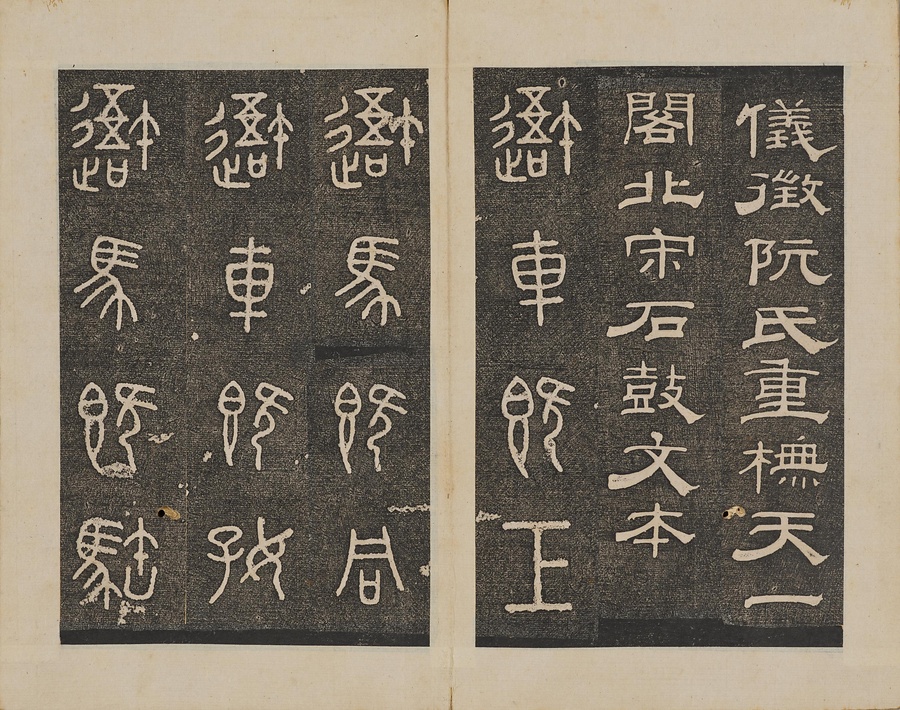 儀徵阮氏重橅天一
閣北宋石鼓文本
䢭車既工
䢭馬既同
䢭車既𢼒
䢭馬既𩣡